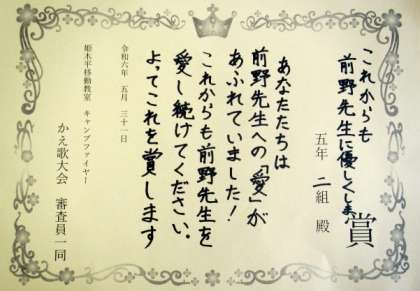 これからも
前野先生に優しくしま賞
五年 二組 殿
あなたたちは
前野先生への「愛」が
あふれていました!
これからも前野先生を
愛し続けてください.
よってこれを賞します
令和六年 五月 三十一日
姫木平移動教室 キャンプファイヤー
かえ歌大会 審査員一同